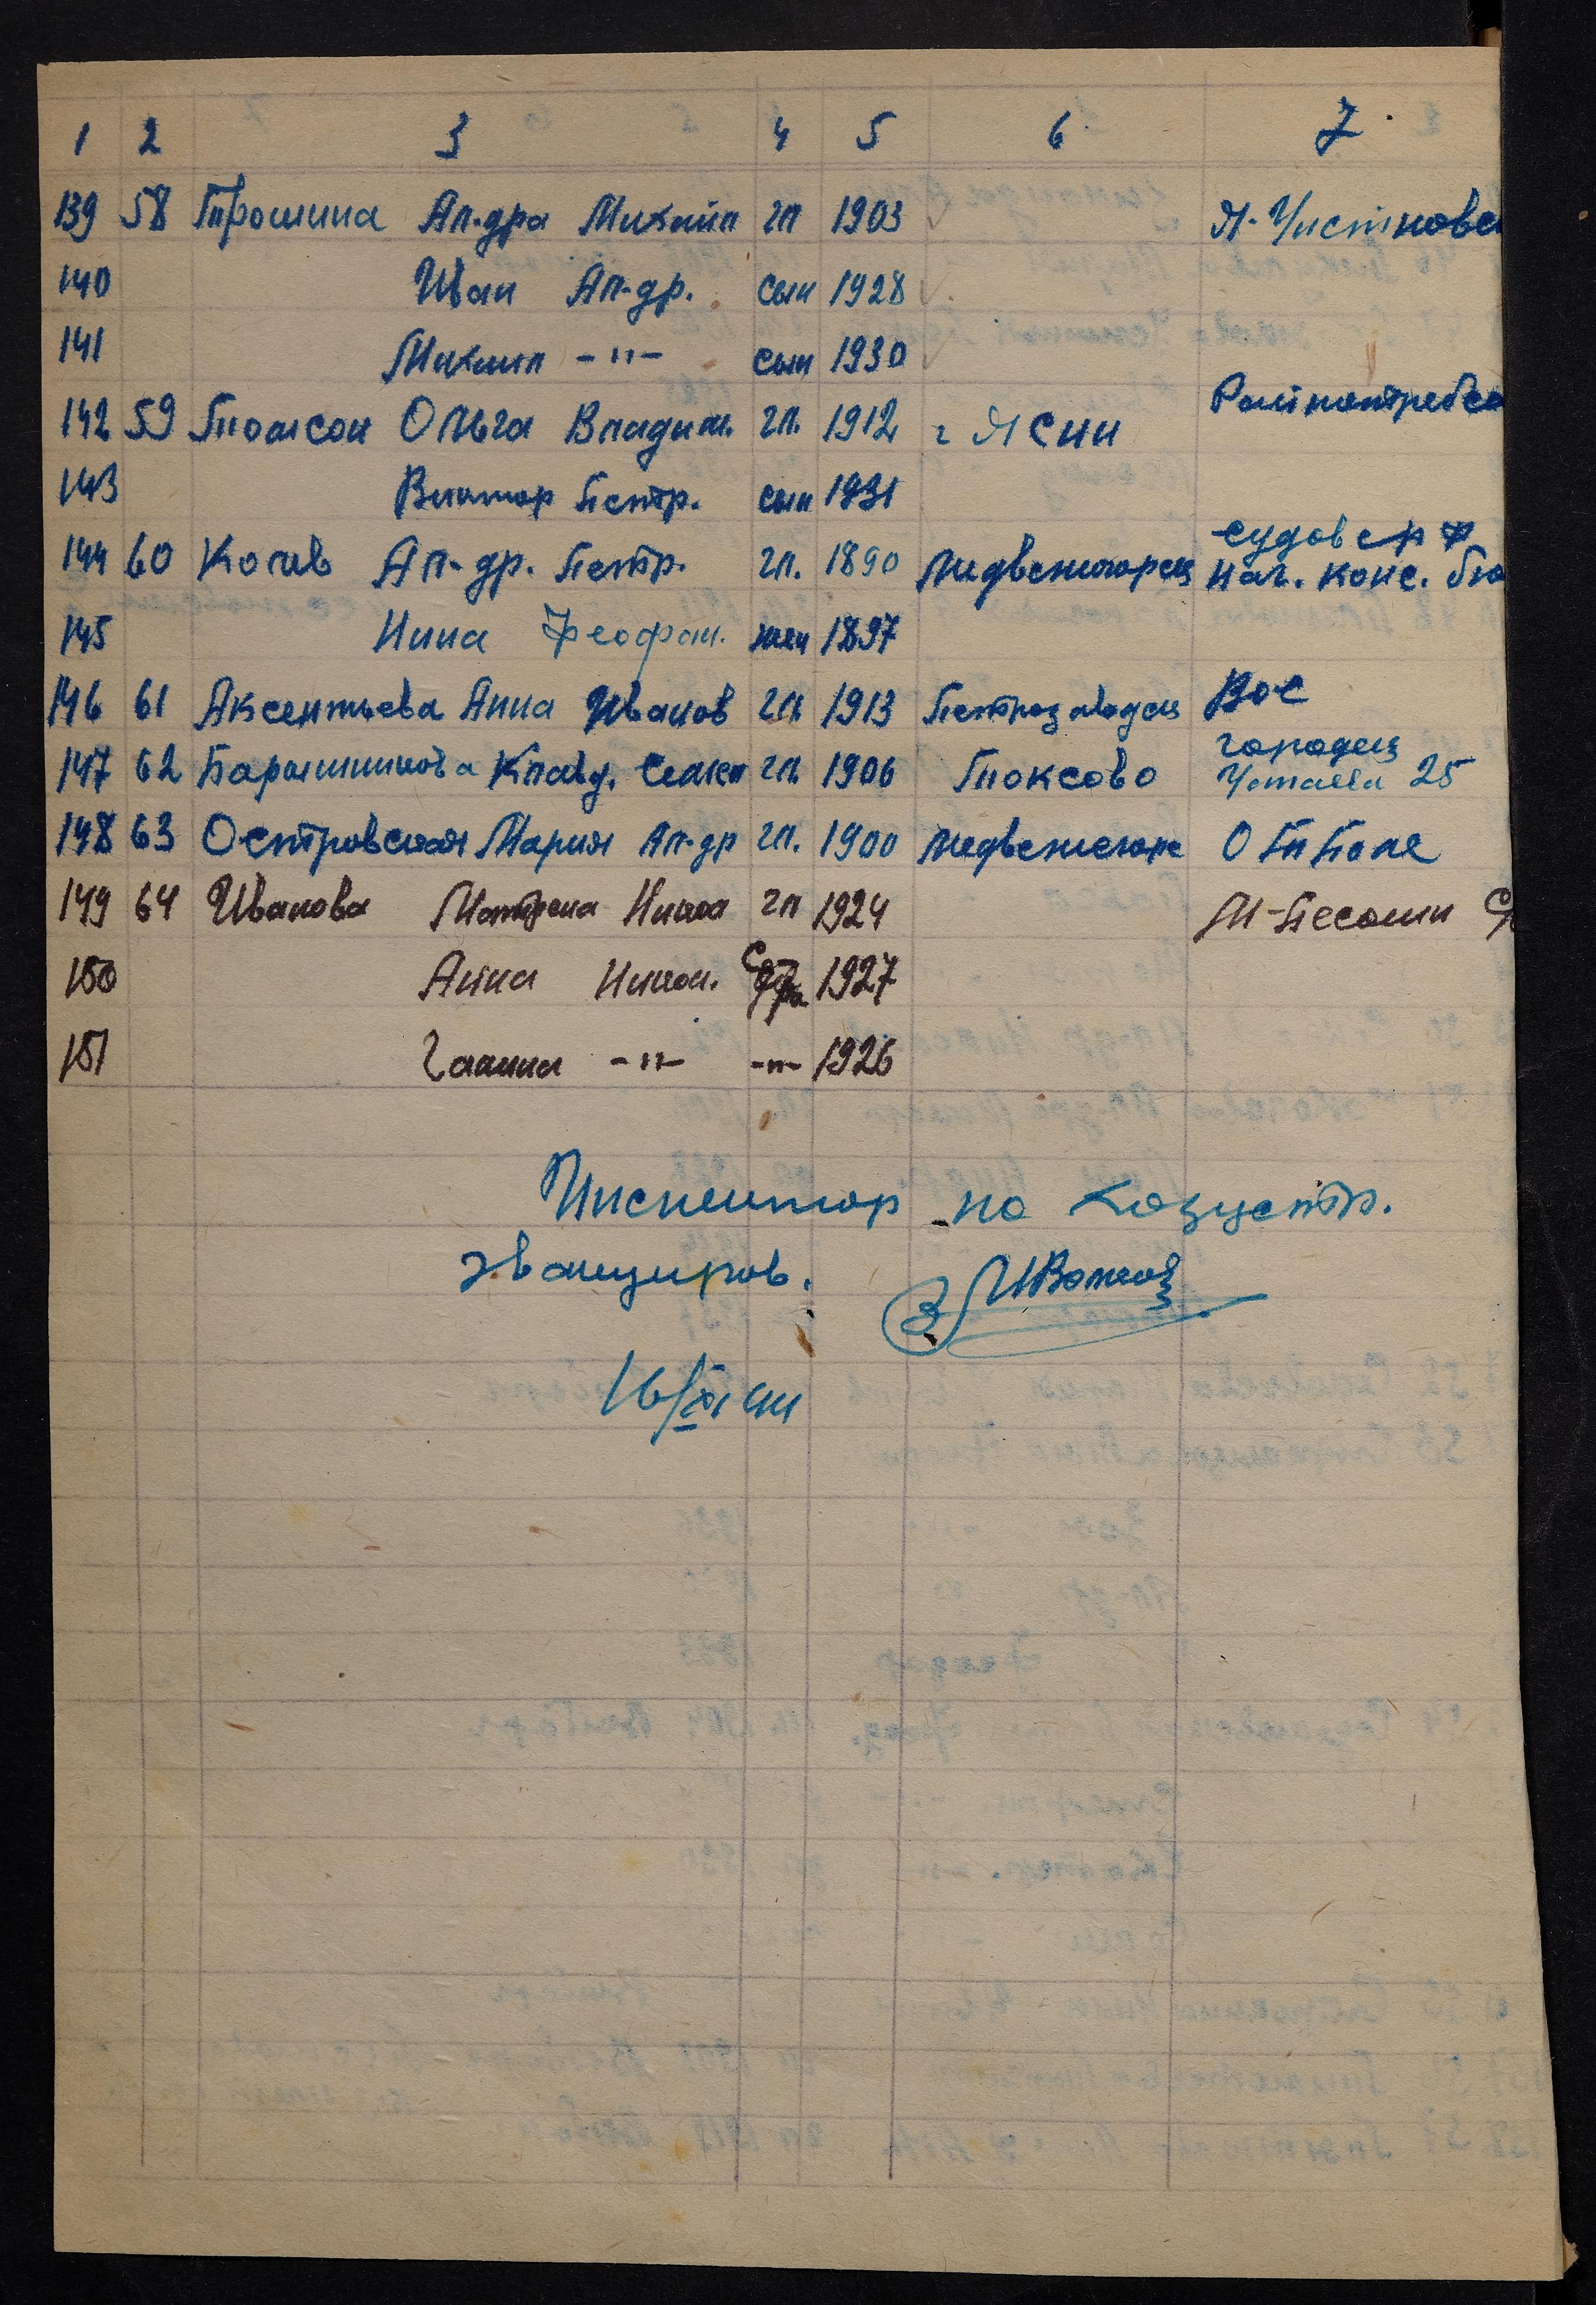 1 2 3 4 5 6 7
139 58 Трошина Ал-дра Михайл гл 1903
140 Иван Ал-др. сын 1928
141 Михаил -"- сын 1930
Райпотребсо
142 59 Томсон Ольга Владим. гл. 1912 г Ясни
143 Виктор Петр. сын 1931
судоверф
144 60 Кочев Ал-др. Петр. гл. 1890 Медвежигорск Нач. конс. бю
145 Нина Феофан. жен 1897
146 61 Аксентьева Анна Иванов гл 1913 Петрозаводск ВОС
городск
147 62 Барышникова Клавд. Семен гл 1906 Токсово 25
148 63 Островская Мария Ал-др гл. 1900 Медвежегорс
149 64 Иванова Матрена Никол гл 1924 М-Песоши
150 Анна Никол. Сестра 1927
151 Галина -"- -"- 1926
Инспектор по хозустр.
эвакуиров.
16/XI 44